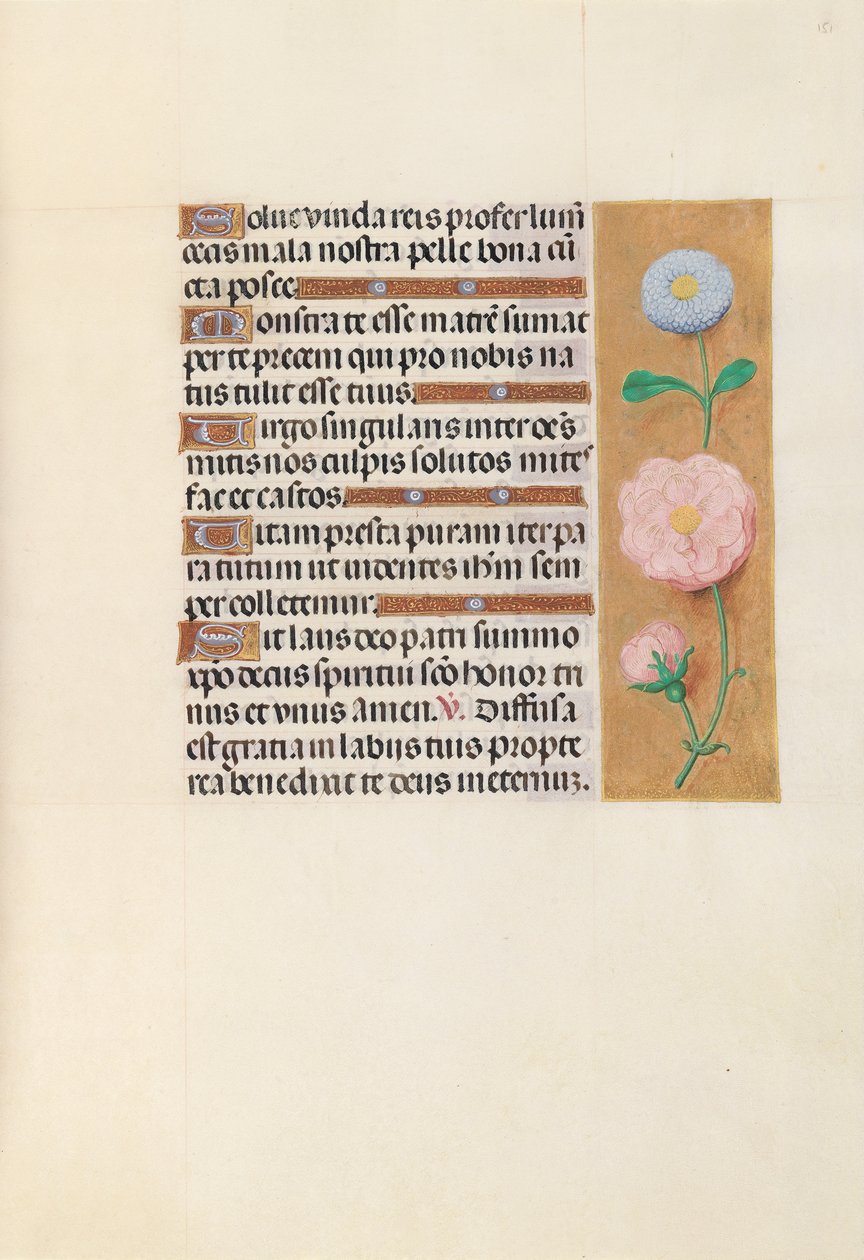 151
Solue vincla reis profer lum̄
cecis mala nostra pelle bona cū
cta posce.
Monstra te esse matrē sumat
per te precem qui pro nobis na
tus tulit esse tuus.
Virgo singularis inter oēs
mitis nos culpis solutos mites
fac et castos.
Vitam presta puram iter pa
ra tutum ut uidentes ihm̄ sem
per colletemur.
Sit laus deo patri summo
xp̄o decus spiritui scō honor tri
nus et vnus Amen. V̄. Diffusa
est gratia in labijs tuis propte
rea benedixit te deus in eternuꝫ.